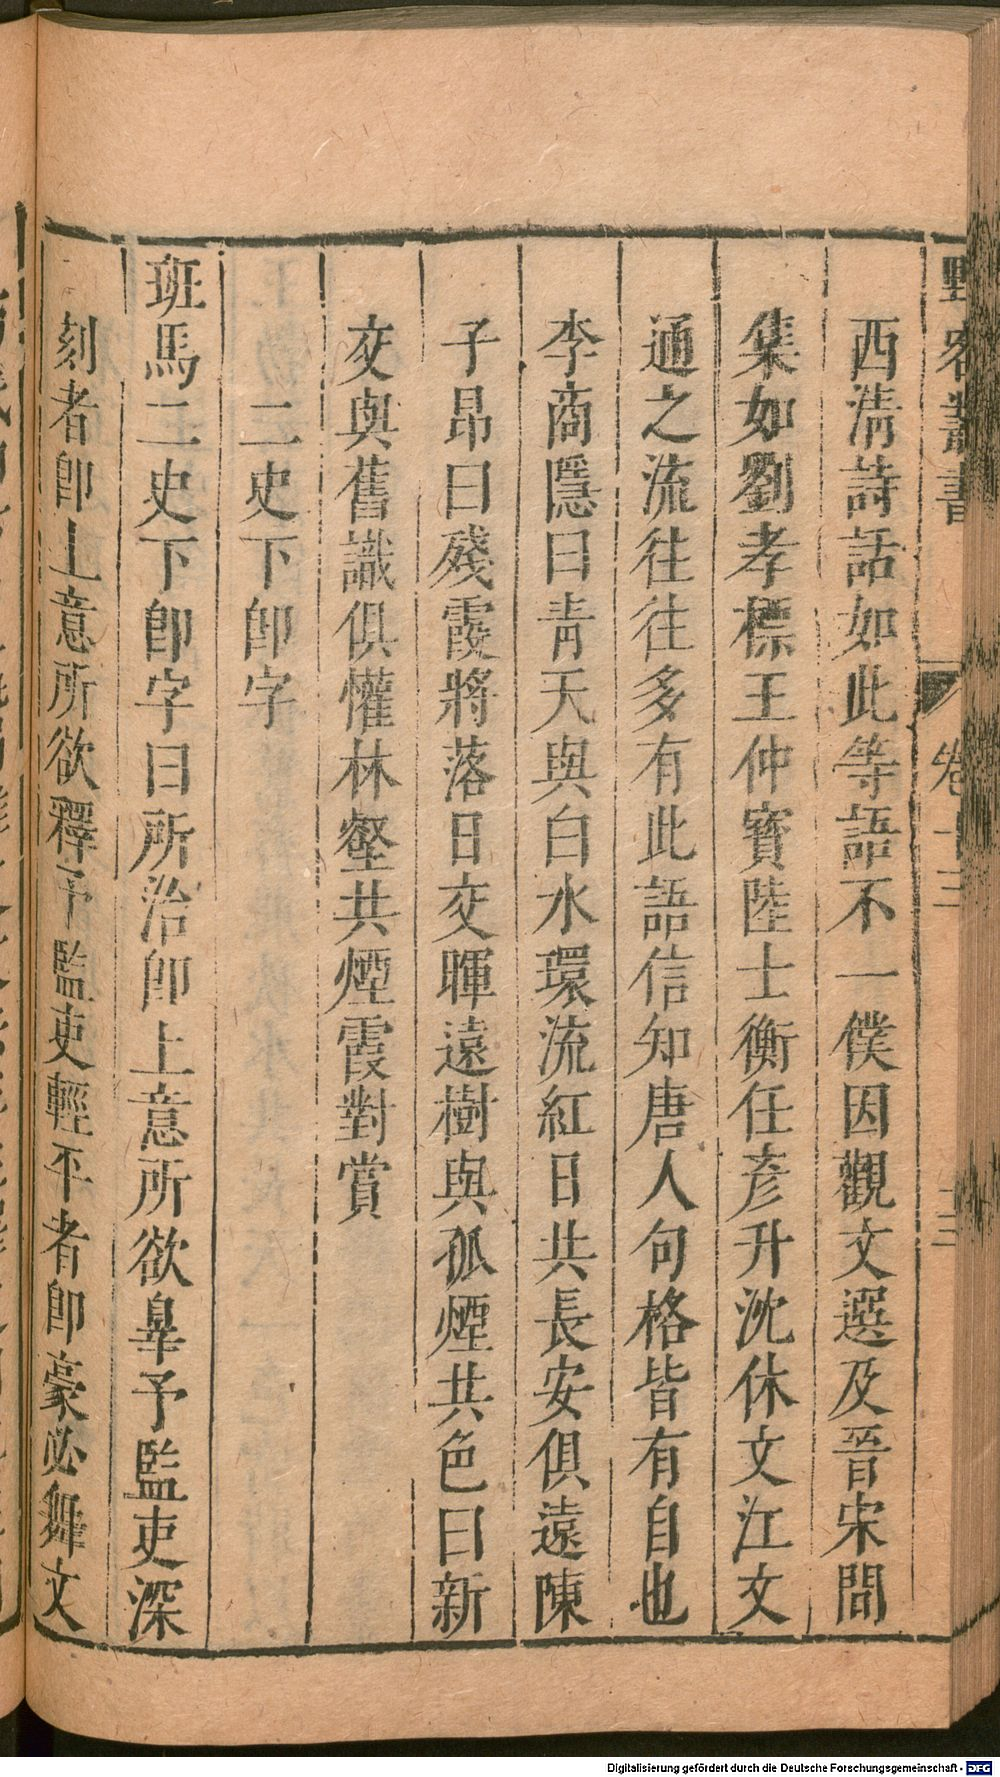 野客叢書 卷十三 十三
西清詩話如此等語不一僕因觀文選及晉宋間
集如劉孝標王仲寶陸士衡任彥升沈休文江文
通之流往往多有此語信知唐人句格皆有自也
李商隱曰青天與白水環流紅日共長安俱遠陳
子昂曰殘霞將落日交暉遠樹與孤煙共色曰新
交與舊識俱懽林壑共煙霞對賞
二史下卽字
班馬二史下卽字曰所治卽上意所欲辠予監吏深
刻者卽上意所欲釋予監吏輕平者卽豪必舞文
Digitalisierung gefördert durch die Deutsche Forschungsgemeinschaft - DFG